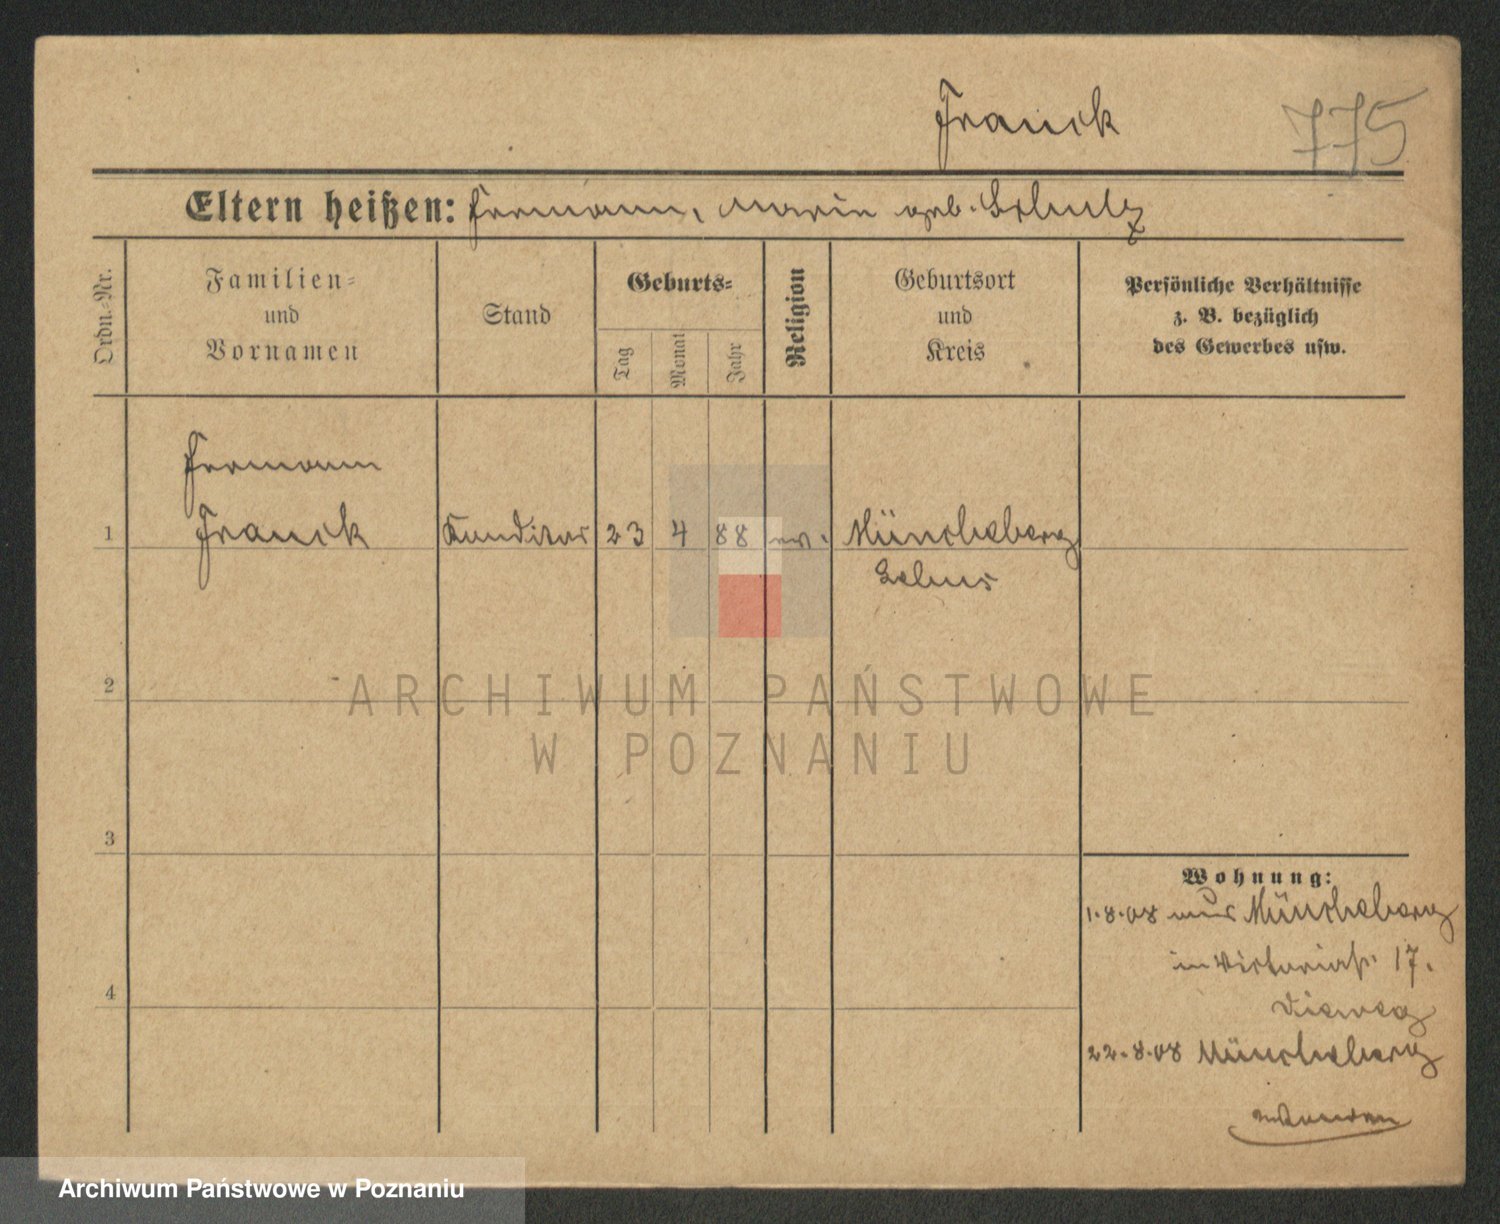 Franck
775
Eltern heißen: Hermann, Marie geb. Schulz
Ordn.-Nr.
Familien-
und
Vornamen
Stand
Geburts-
Tag
Monat
Jahr
Religion
Geburtsort
und
Kreis
Persönliche Verhältnisse
z. B. bezüglich
des Gewerbes usw.
Hermann
1 Franck Konditor 23 4 88 ev. Müncheberg
Lebus
2
ARCHIWUM PAŃSTWOWE
W POZNANIU
3
Wohnung:
1.8.08 aus Müncheberg
in Victoriastr. 17.
4
Vieweg
22.8.08 Müncheberg
Archiwum Państwowe w Poznaniu